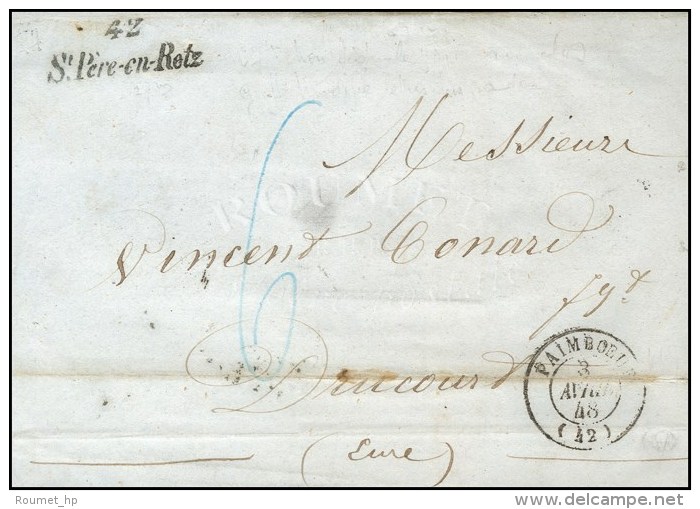 42
St. Père-en-Retz
6
Messieurs
Vincent Conard
fgt
Drucourt
(Eure)
PAIMBOEUF
3
AVRIL
48
(42)
Roumet_hp
delcampe.net